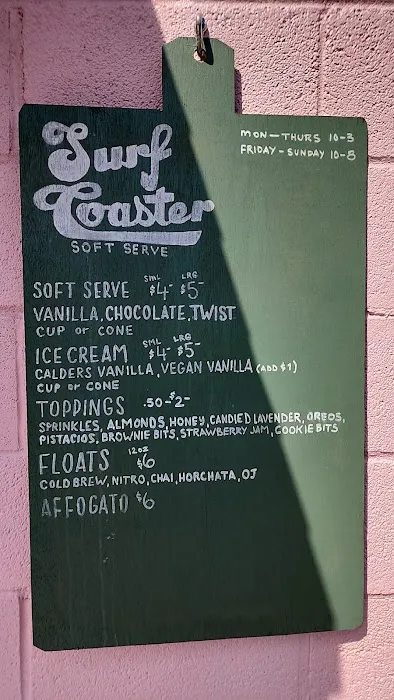 MON-THURS 10-3
FRIDAY-SUNDAY 10-8
Surf
Coaster
SOFT SERVE
SML LRG
SOFT SERVE $4- $5-
VANILLA, CHOCOLATE, TWIST
CUP or CONE
SML LRG
ICE CREAM $4- $5-
CALDERS VANILLA, VEGAN VANILLA (ADD $1)
CUP or CONE
TOPPINGS .50-$2-
SPRINKLES, ALMONDS, HONEY, CANDIED LAVENDER, OREOS,
PISTACIOS, BROWNIE BITS, STRAWBERRY JAM, COOKIE BITS
12oz
FLOATS $6
COLD BREW, NITRO, CHAI, HORCHATA, OJ
AFFOGATO $6